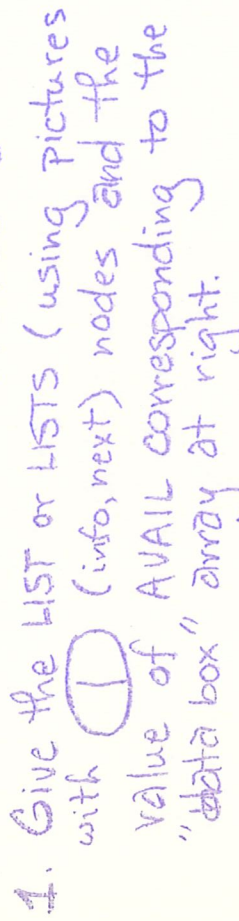 1. Give the LIST or LISTS (using pictures
with (info, next) nodes and the
value of AVAIL corresponding to the
"data box" array at right.